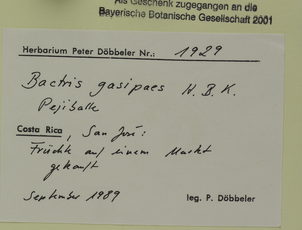 Als Geschenk zugegangen an die
Bayerische Botanische Gesellschaft 2001
Herbarium Peter Döbbeler Nr.: 1929
Bactris gasipaes H. B. K.
Pejiballe
Costa Rica, San José:
Früchte auf einem Markt
gekauft
September 1989
leg. P. Döbbeler